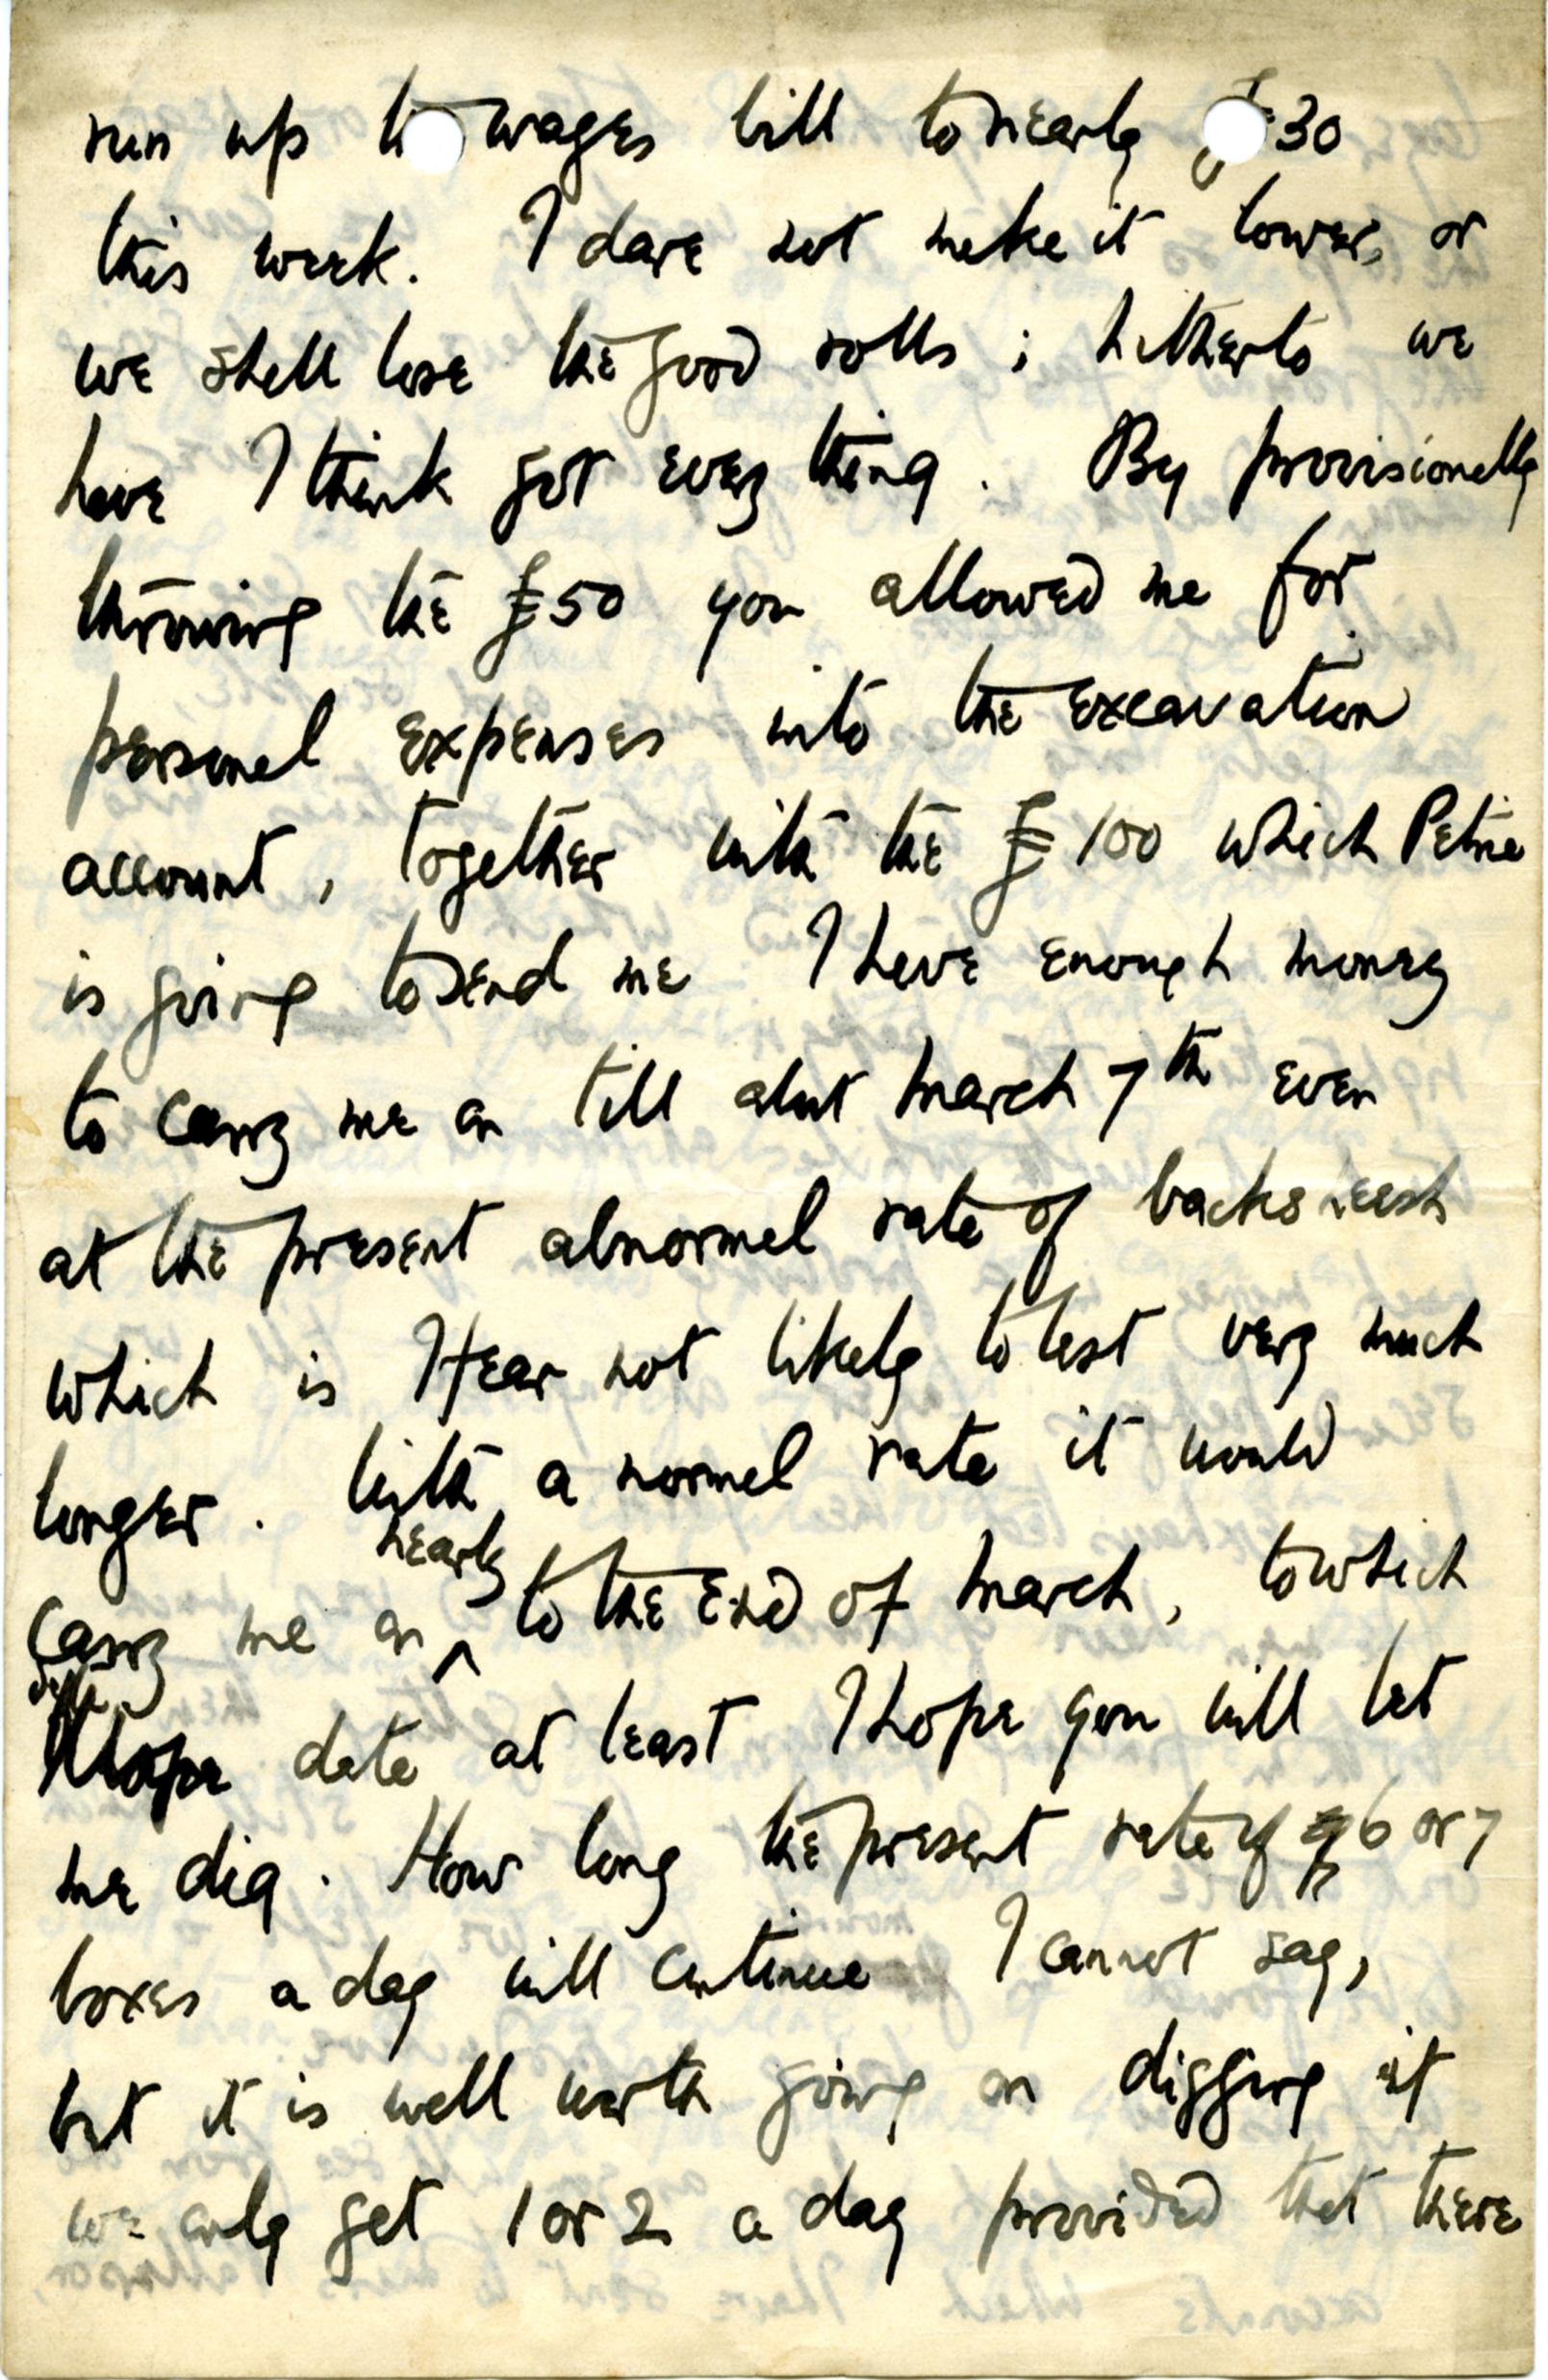 run up the wages bill to nearly £30
this week. I dare not make it lower, or
we shall lose the good rolls; hitherto we
have I think got every thing. By provisionally
throwing the £50 you allowed me for
personal expenses into the excavation
account, together with the £100 which Petrie
is going to send me I have enough money
to carry me on till abut March 7th even
at the present abnormal rate of backsheesh
which is I fear not likely to last very much
longer. With a normal rate it would
nearly
carry me on ^ to the end of March, to which
date at least I hope you will let
me dig. How long the present rate of 6 or 7
boxes a day will continue I cannot say,
but it is well worth going on digging if
we only get 1 or 2 a day provided that there